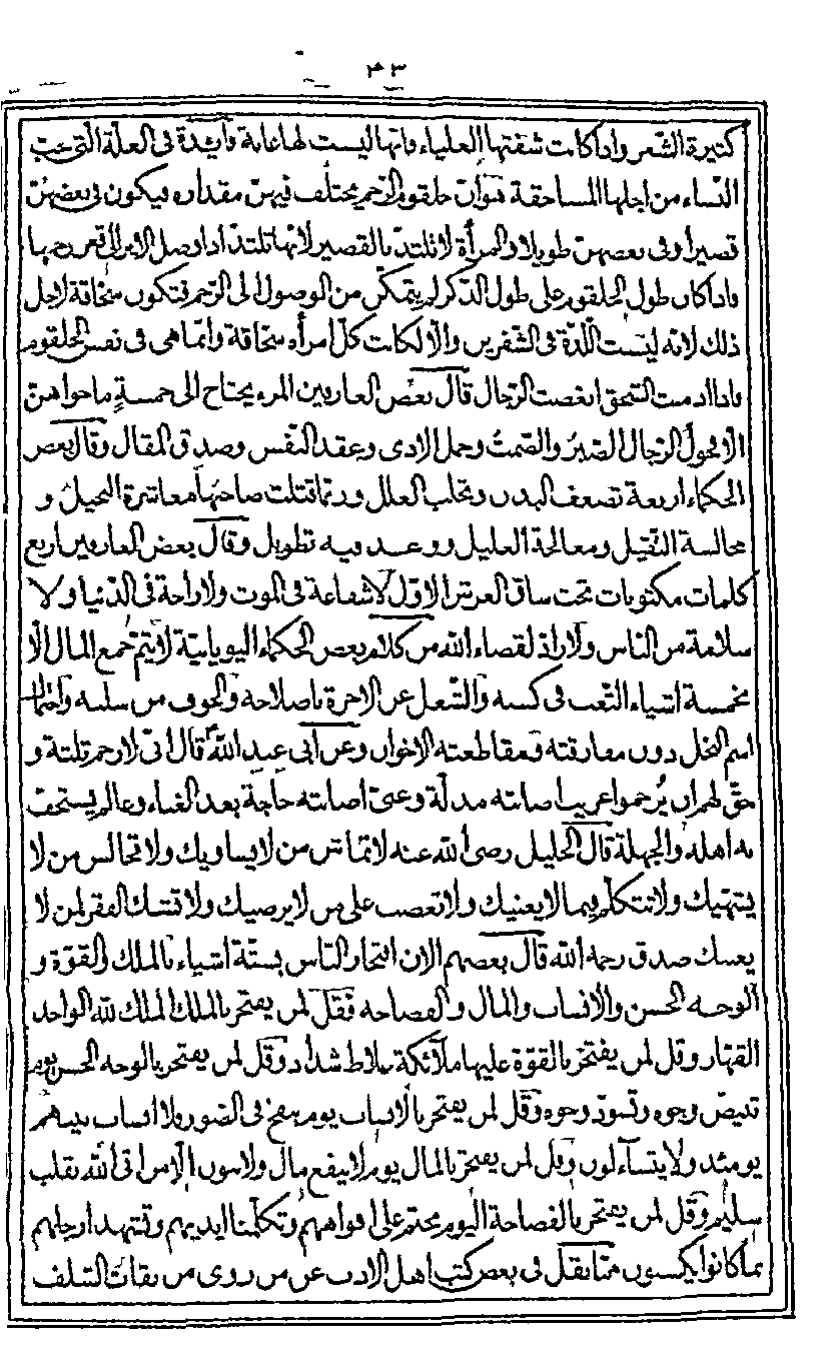 ۴۳
كثيرة الشعر واذا كانت شفتها العلياء فانها ليست لها عانة فائدة فى العلّة التى تحبّ
النساء من اجلها المساحقة هو أن حلقوم الرحم يختلف فيهنّ مقداره فيكون فى بعضهنّ
قصيرا وفى بعضهنّ طويلا والمرأة لا تلتذّ بالقصير لانّها تلتذّ اذا وصل الاير الى قعر رحمها
فاذا كان طول الحلقوم على طول الذكر لم يتمكّن من الوصول الى الرحم فتكون سحّاقة لاجل
ذلك لانه ليست اللّذة فى الشفرين والّا لكانت كلّ امرأة سحّاقة وانّما هى فى نفس الحلقوم
فاذا ادمنت السّحق ابغضت الرّجال قال بعض العارفين المرء يحتاج الى خمسةٍ ما حواهنّ
الّا فحول الرّجال الصّبرُ والصّمتُ وحمل الاذى وعقد النّفس وصدق المقال وقال بعض
الحكماء اربعة تضعف البدن وتجلب العلل وربّما قتلت صاحبها معاشرة البخيل و
مجالسة الثقيل ومعالجة العليل ووعد فيه تطويل وقال بعض العارفين اربع
كلمات مكتوبات تحت ساق العرش الاوّل لا شفاعة فى الموت ولا راحة فى الدّنيا ولا
سلامة من الناس ولا رادّ لقضاء الله من كلام بعض الحكماء اليونانيّة لا يتمّ جمع المال الّا
بخمسة اشياء التّعب فى كسبه والشّغل عن الاخرة باصلاحه والخوف من سلبه واحتمال
اسم البخل دون مفارقته ومقاطعته الاخوان وعن ابى عبد الله قال انّى لارحم ثلثة و
حقّ لهم ان يُرحموا عزيز اصابته مذلّة وغنىّ اصابته حاجة بعد الغناء وعالم يستخفّ
به اهله والجهلة قال الخليل رضى الله عنه لا تماش من لا يساويك ولا تجالس من لا
يشتهيك ولا تتكلّم فيما لا يعنيك ولا تغصب على من لا يرضيك ولا تشك الفقر لمن لا
يغنيك صدق رحمه الله قال بعضهم الان افتخار الناس بستّة اشياء بالملك والقوّة و
الوجه الحسن والانساب والمال والفصاحه فقل لمن يفتخر بالملك الملك لله الواحد
القهّار وقل لمن يفتخر بالقوّة عليها ملائكة غلاظ شداد وقل لمن يفتخر بالوجه الحسن يوم
تبيضّ وجوه وتسودّ وجوه وقل لمن يفتخر بالانساب يوم ينفخ فى الصّور فلا انساب بينهم
يومئذ ولا يتسآءلون وقل لمن يفتخر بالمال يوم لا ينفع مال ولا بنون الّا من اتى الله بقلب
سليم وقل لمن يفتخر بالفصاحة اليوم نختم على افواههم وتكلّمنا ايديهم وتشهد ارجلهم
بما كانوا يكسبون ممّا نقل فى بعض كتب اهل الادب عن من روى من ثقات السّلف